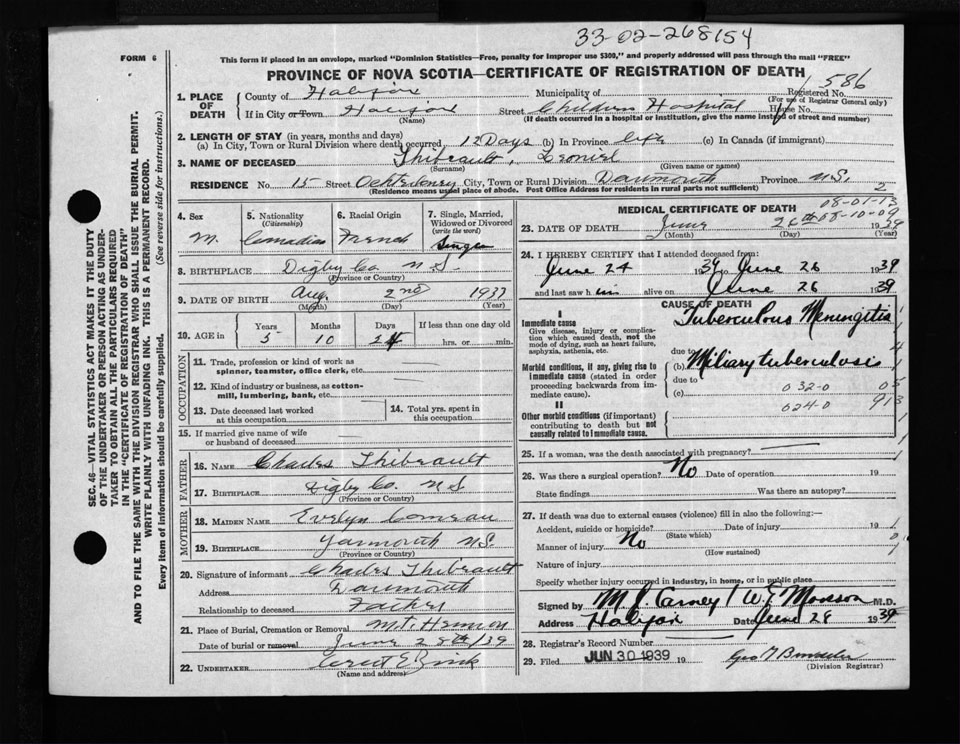 33-02-268154
FORM 6
This form if placed in an envelope, marked "Dominion Statistics—Free, penalty for improper use $300," and properly addressed will pass through the mail "FREE"
PROVINCE OF NOVA SCOTIA—CERTIFICATE OF REGISTRATION OF DEATH
1. PLACE OF DEATH
County of Halifax Municipality of Registered No. 586
(For use of Registrar General only)
If in City or Town Halifax Street Childrens Hospital House No.
(Name) (If death occurred in a hospital or institution, give the name instead of street and number)
2. LENGTH OF STAY (in years, months and days)
(a) In City, Town or Rural Division where death occurred 12 Days (b) In Province life (c) In Canada (if immigrant)
3. NAME OF DECEASED Thibeault,
(Surname) (Given name or names)
RESIDENCE No. 15 Street City, Town or Rural Division Dartmouth Province N.S. 2
(Residence means usual place of abode. Post Office Address for residents in rural parts not sufficient)
4. Sex
M.
5. Nationality (Citizenship)
Canadian
6. Racial Origin
French
7. Single, Married, Widowed or Divorced (write the word)
Single
8. BIRTHPLACE Digby Co. N.S.
(Province or Country)
9. DATE OF BIRTH Aug. 2nd 1933
(Month) (Day) (Year)
10. AGE in
Years Months Days If less than one day old
5 10 24 hrs. or min.
OCCUPATION
11. Trade, profession or kind of work as spinner, teamster, office clerk, etc.
12. Kind of industry or business, as cotton-mill, lumbering, bank, etc.
13. Date deceased last worked at this occupation
14. Total yrs. spent in this occupation
15. If married give name of wife or husband of deceased
FATHER
16. NAME Charles Thibeault
17. BIRTHPLACE Digby Co. N.S
(Province or Country)
MOTHER
18. MAIDEN NAME Evelyn Comeau
19. BIRTHPLACE Yarmouth N.S.
(Province or Country)
20. Signature of informant Charles Thibeault
Address Dartmouth
Relationship to deceased Father
21. Place of Burial, Cremation or Removal Mt. Hermon
Date of burial or removal June 28th/39
22. UNDERTAKER Zink
(Name and address)
MEDICAL CERTIFICATE OF DEATH
08-01-13
08-10-09
23. DATE OF DEATH June 26th 1939
(Month) (Day) (Year)
24. I HEREBY CERTIFY that I attended deceased from:
June 24 1939 to June 26 1939
and last saw him alive on June 26 1939
CAUSE OF DEATH
I
Immediate cause
Give disease, injury or complication which caused death, not the mode of dying, such as heart failure, asphyxia, asthenia, etc.
Tuberculous Meningitis
due to
Morbid conditions, if any, giving rise to immediate cause (stated in order proceeding backwards from immediate cause).
(b) Miliary tuberculosis
due to
(c)
032-0 05
024-0 913
II
Other morbid conditions (if important) contributing to death but not causally related to immediate cause.
25. If a woman, was the death associated with pregnancy?
26. Was there a surgical operation? No Date of operation 19
State findings Was there an autopsy?
27. If death was due to external causes (violence) fill in also the following:—
Accident, suicide or homicide? Date of injury 19
(State which)
Manner of injury No
(How sustained)
Nature of injury
Specify whether injury occurred in industry, in home, or in public place
Signed by M.D.
Address Halifax Date June 28 1939
28. Registrar's Record Number
29. Filed JUN 30 1939 19
(Division Registrar)
SEC. 46—VITAL STATISTICS ACT MAKES IT THE DUTY OF THE UNDERTAKER OR PERSON ACTING AS UNDERTAKER TO OBTAIN ALL THE PARTICULARS REQUIRED IN THE "CERTIFICATE OF REGISTRATION OF DEATH"
AND TO FILE THE SAME WITH THE DIVISION REGISTRAR WHO SHALL ISSUE THE BURIAL PERMIT.
WRITE PLAINLY WITH UNFADING INK. THIS IS A PERMANENT RECORD.
Every item of information should be carefully supplied. (See reverse side for instructions.)